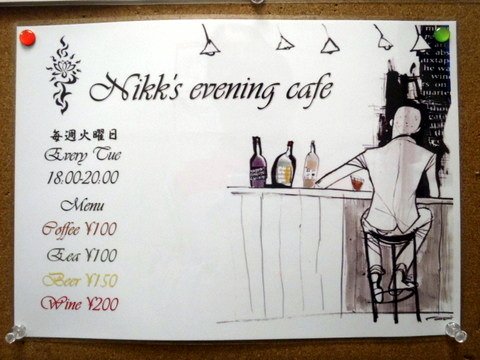 Nikk's evening cafe
毎週火曜日
Every Tue
18.00-20.00
Menu
Coffee ¥100
Eea ¥100
Beer ¥150
Wine ¥200